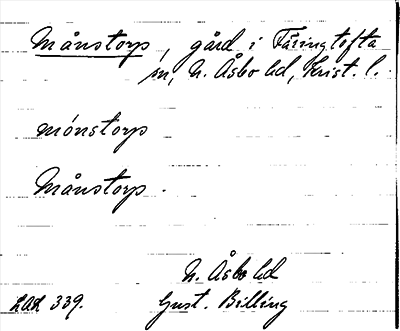 Månstorp, gård i Färingtofta
sn, N. Åsbo hd, Krist. l.
mónstorp
Månstorp.
N. Åsbo hd
LAL 339. Gust. Billing